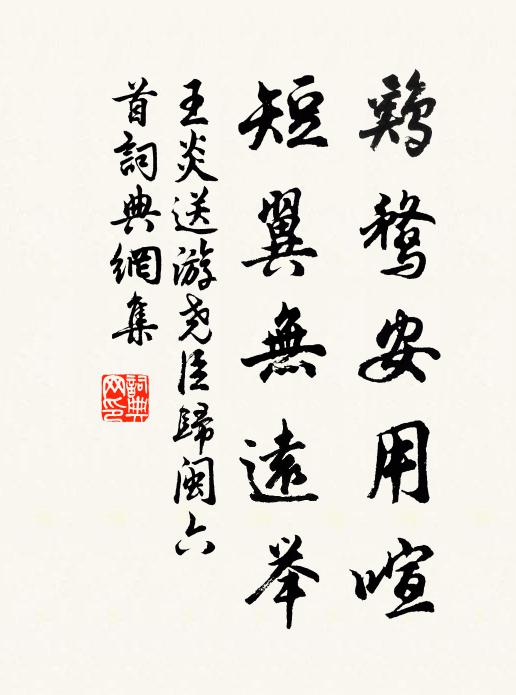 鷄鶩安用喧
短翼無遠举
王炎送游尧臣歸閩六
首詞典網集
詞典
网印